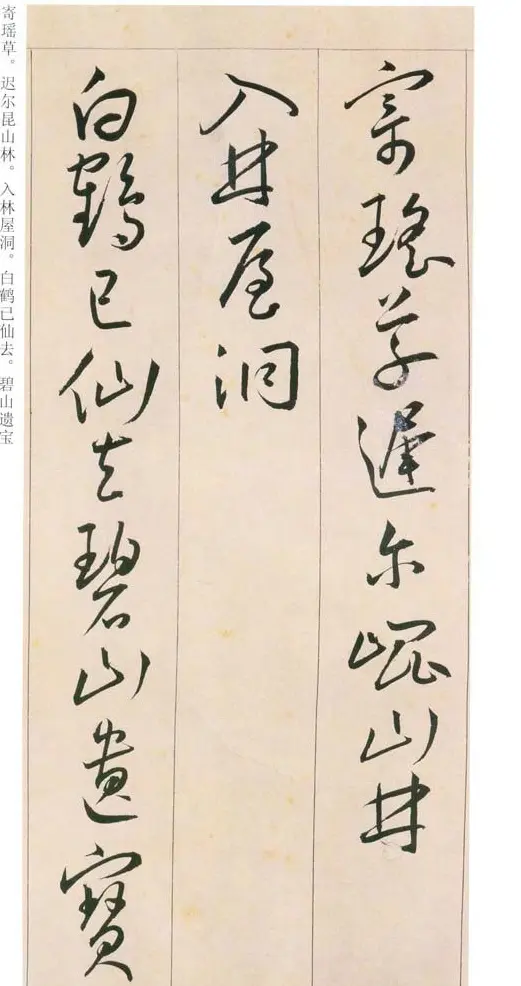 寄瑤草遲尔崐山林
入林屋洞
白鶴已仙去碧山遺寶
寄瑶草。迟尔昆山林。入林屋洞。白鹤已仙去。碧山遗宝